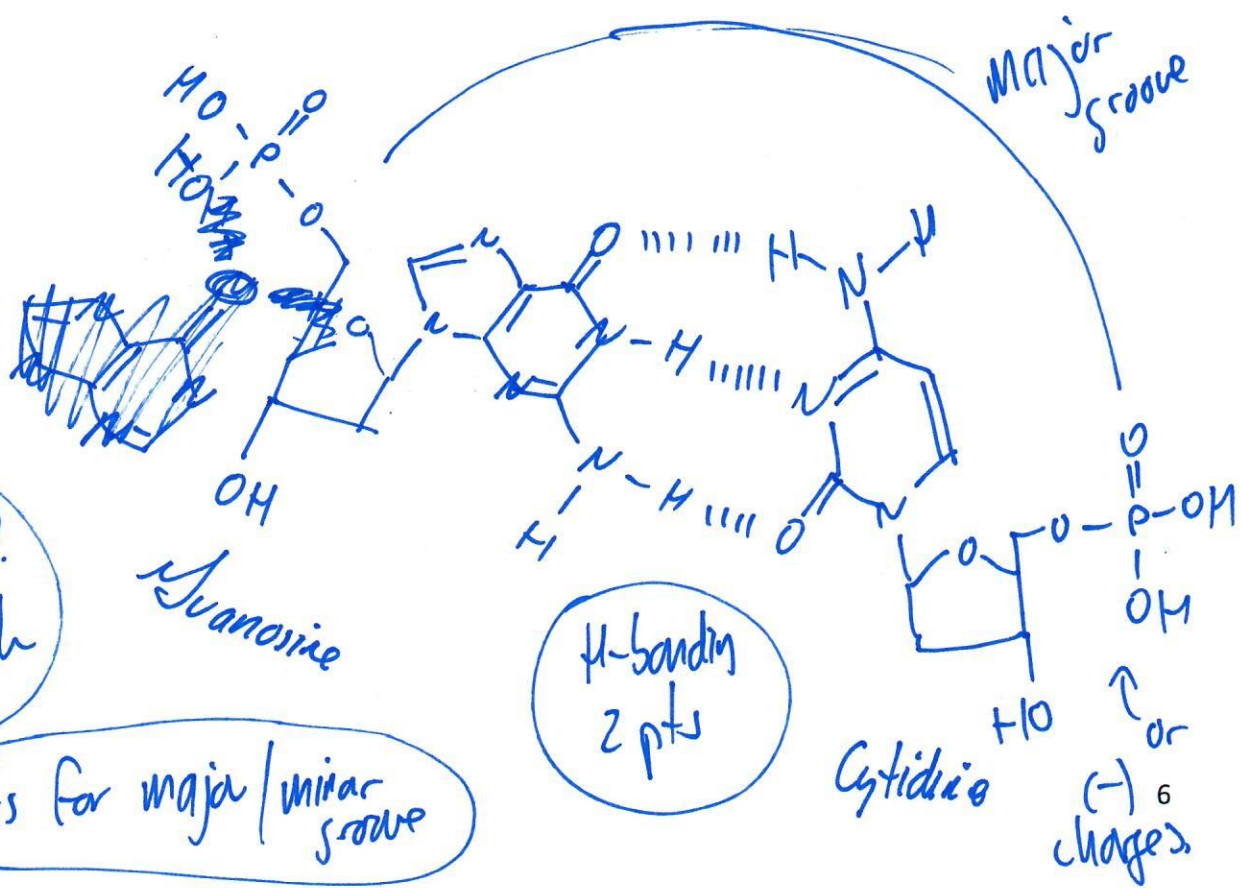 Major
groove
HO
O
P
HO
O
O
OH
N
N
N
N
O
N - H
N - H
H
H
N
H
N
O
N
O
O
O
P
OH
OH
HO
Guanosine
H-bonding
2 pts
Cytidine
or
(-)
charges
6
s for major / minar
groove